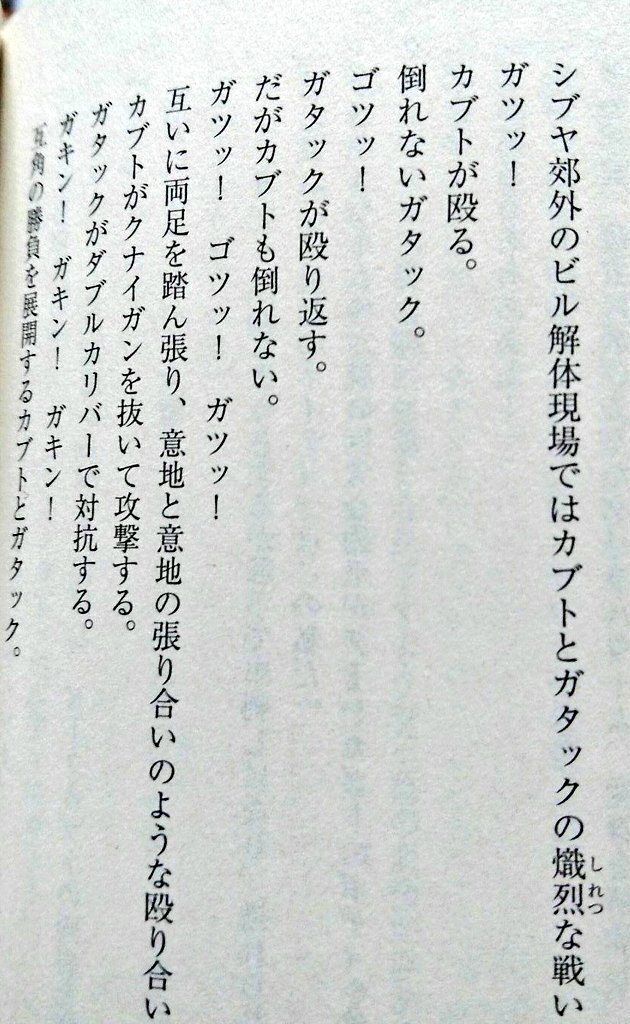 シブヤ郊外のビル解体現場ではカブトとガタックの熾烈な戦い
しれつ
ガツッ！
カブトが殴る。
倒れないガタック。
ゴツッ！
ガタックが殴り返す。
だがカブトも倒れない。
ガツッ！　ゴツッ！　ガツッ！
互いに両足を踏ん張り、意地と意地の張り合いのような殴り合い
カブトがクナイガンを抜いて攻撃する。
ガタックがダブルカリバーで対抗する。
ガキン！　ガキン！　ガキン！
互角の勝負を展開するカブトとガタック。